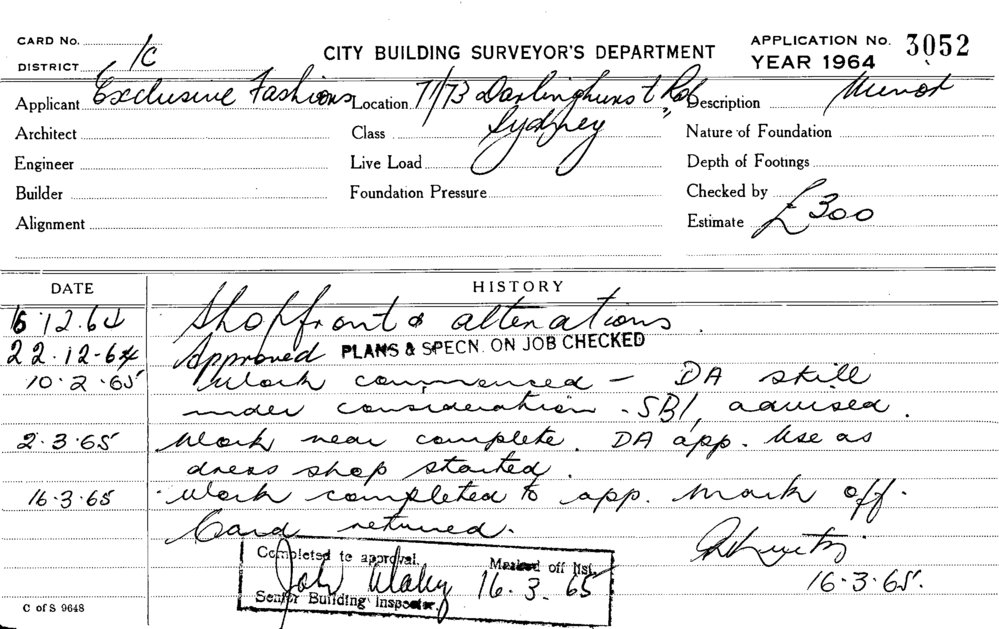 CARD No.
DISTRICT 1C
CITY BUILDING SURVEYOR'S DEPARTMENT
APPLICATION No. 3052
YEAR 1964
Applicant Exclusive Fashions Location 71/73 Darlinghurst Rd. Description Minor
Architect Class Sydney Nature of Foundation
Engineer Live Load Depth of Footings
Builder Foundation Pressure Checked by
Alignment Estimate £300
DATE HISTORY
16.12.64 Shopfront & alterations.
22.12.64 Approved PLANS & SPECN. ON JOB CHECKED
10.2.65 Work commenced – DA still
under consideration - SBI, advised.
2.3.65 Work near complete. DA app. Use as
dress shop started.
16.3.65 Work completed to app. Mark off.
Card returned.
16.3.65.
Completed to approval. Marked off list.
John 16.3.65
Senior Building Inspector.
C of S 9648